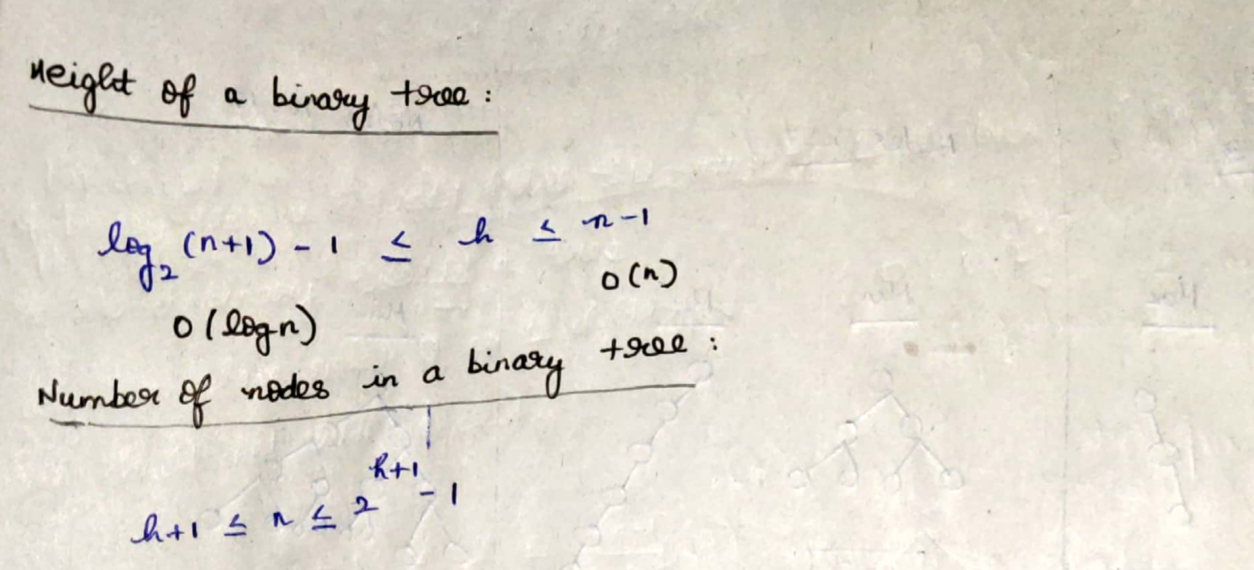 Height of a binary tree :
log₂ (n+1) - 1 ≤ h ≤ n-1
O(n)
O(logn)
Number of nodes in a binary tree :
h+1 ≤ n ≤ 2^(h+1) - 1